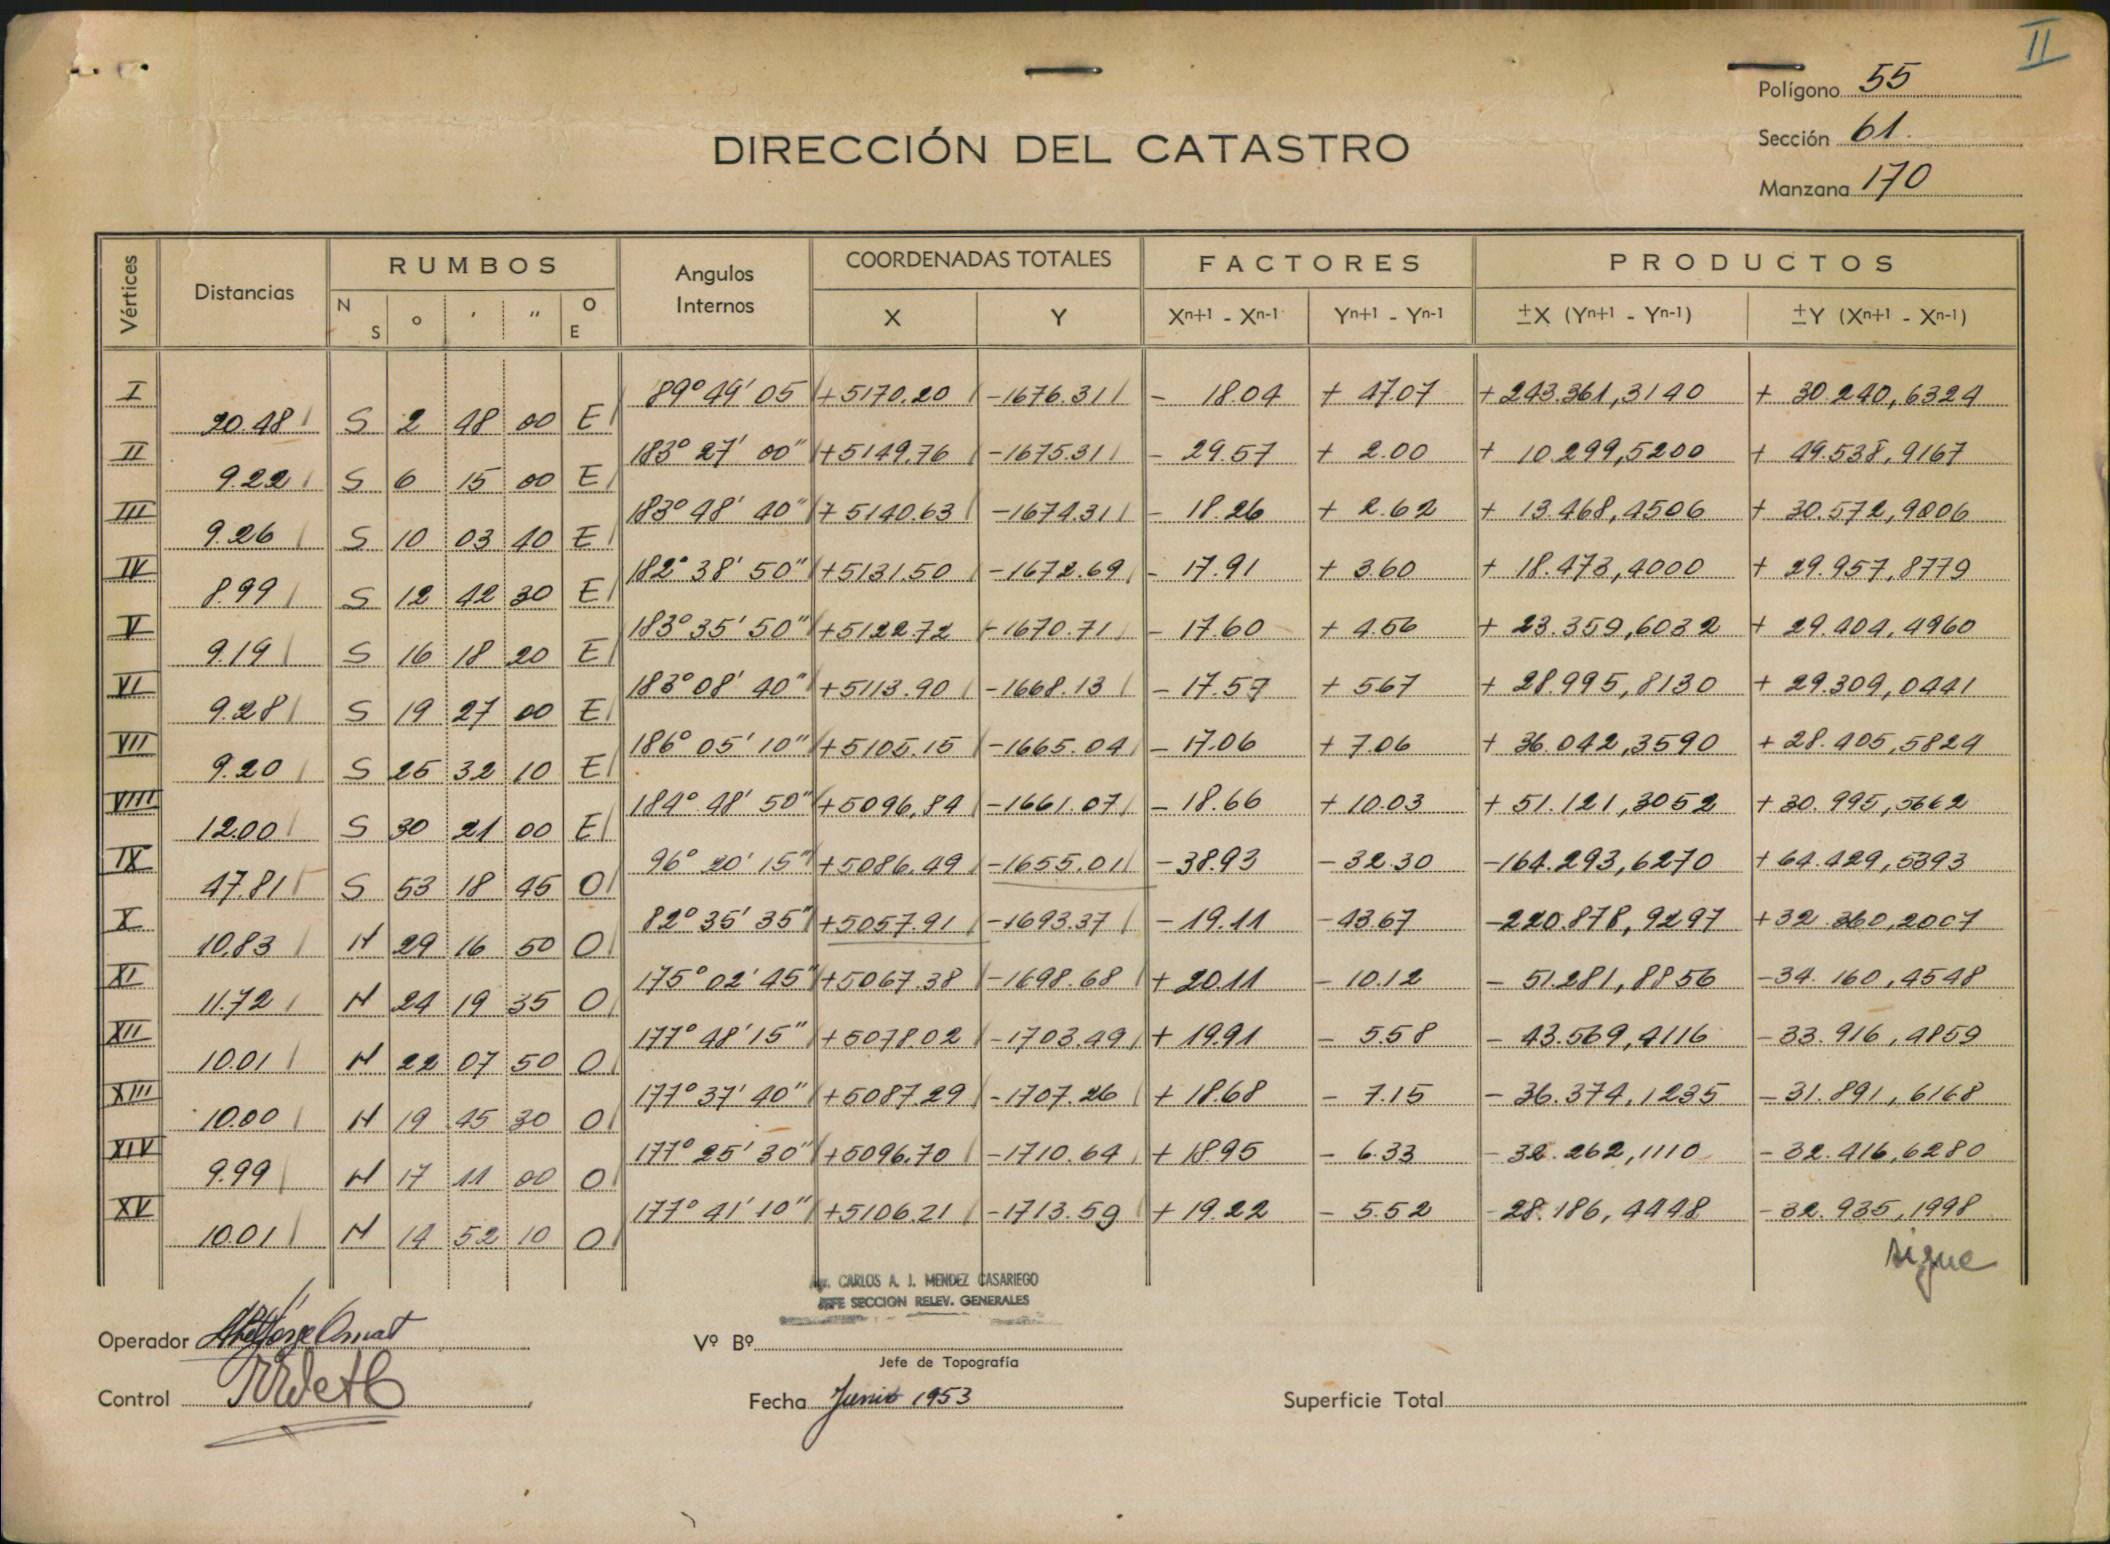 II
Polígono 55
Sección 61.
Manzana 170
DIRECCIÓN DEL CATASTRO
Vértices Distancias RUMBOS Angulos Internos COORDENADAS TOTALES FACTORES PRODUCTOS
N S ° ' " O E X Y Xⁿ⁺¹ - Xⁿ⁻¹ Yⁿ⁺¹ - Yⁿ⁻¹ ±X (Yⁿ⁺¹ - Yⁿ⁻¹) ±Y (Xⁿ⁺¹ - Xⁿ⁻¹)
I 89° 49' 05 +5170.20 -1676.31 - 18.04 + 47.07 +243.361,3140 + 30.240,6324
20.48 S 2 48 00 E
II 183° 27' 00" +5149.76 -1675.31 - 29.57 + 2.00 + 10.299,5200 + 49.538,9167
9.22 S 6 15 00 E
III 183° 48' 40" + 5140.63 -1674.31 - 18.26 + 2.62 + 13.468,4506 + 30.572,9006
9.26 S 10 03 40 E
IV 182° 38' 50" +5131.50 -1672.69 - 17.91 + 3.60 + 18.473,4000 + 29.957,8779
8.99 S 12 42 30 E
V 183° 35' 50" +5122.72 -1670.71 - 17.60 + 4.56 + 23.359,6032 + 29.404,4960
9.19 S 16 18 20 E
VI 183° 08' 40" +5113.90 -1668.13 - 17.57 + 5.67 + 28.995,8130 + 29.309,0441
9.28 S 19 27 00 E
VII 186° 05' 10" +5105.15 -1665.04 - 17.06 + 7.06 + 36.042,3590 + 28.405,5824
9.20 S 25 32 10 E
VIII 184° 48' 50" +5096,84 -1661.07 - 18.66 + 10.03 + 51.121,3052 + 30.995,5662
12.00 S 30 21 00 E
IX 96° 20' 15" +5086.49 -1655.01 - 38.93 - 32.30 -164.293,6270 + 64.429,5393
47.81 S 53 18 45 O
X 82° 35' 35" +5057.91 -1693.37 - 19.11 - 43.67 -220.878,9297 +32.360,2007
10.83 N 29 16 50 O
XI 175° 02' 45" +5067.38 -1698.68 + 20.11 - 10.12 - 51.281,8856 -34.160,4548
11.72 N 24 19 35 O
XII 177° 48' 15" +5078.02 -1703.49 + 19.91 - 5.58 - 43.569,4116 -33.916,4859
10.01 N 22 07 50 O
XIII 177° 37' 40" +5087.29 -1707.26 + 18.68 - 7.15 - 36.374,1235 -31.891,6168
10.00 N 19 45 30 O
XIV 177° 25' 30" +5096.70 -1710.64 + 18.95 - 6.33 - 32.262,1110 - 32.416,6280
9.99 N 17 11 00 O
XV 177° 41' 10" +5106.21 -1713.59 + 19.22 - 5.52 -28.186,4448 - 32.935,1998
10.01 N 14 52 10 O
sigue
CARLOS A. J. MENDEZ CASARIEGO
JEFE SECCION RELEV. GENERALES
Operador
Vº Bº
Jefe de Topografía
Control
Fecha Junio 1953
Superficie Total